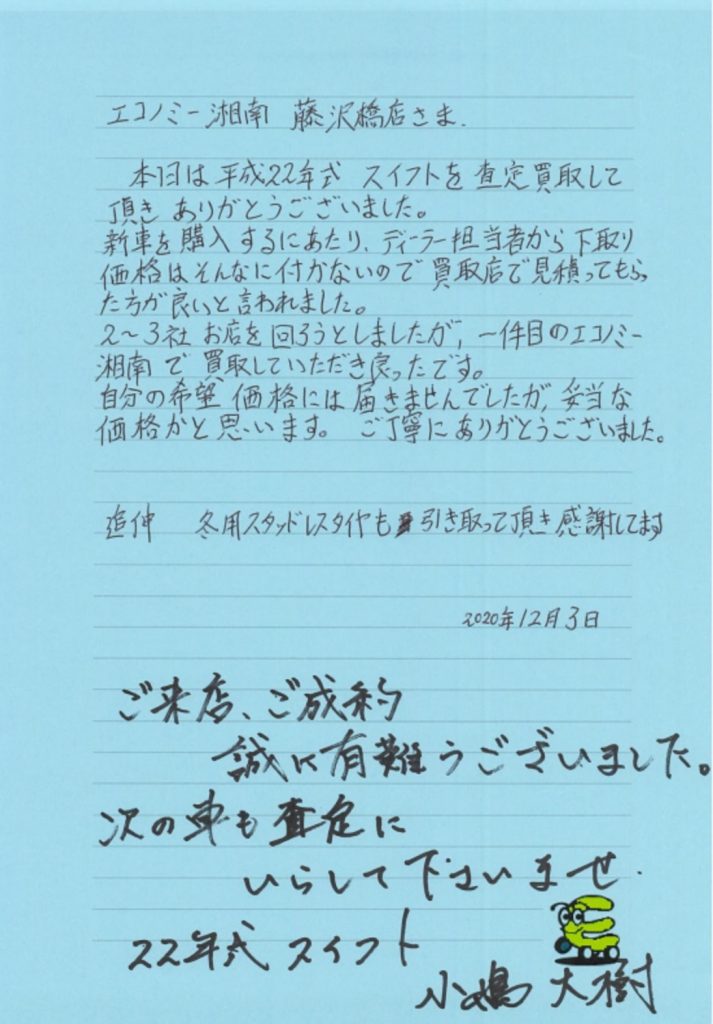 エコノミー湘南 藤沢橋店さま.
本日は平成22年式 スイフトを査定買取して
頂き ありがとうございました。
新車を購入するにあたり、ディーラー担当者から下取り
価格はそんなに付かないので買取店で見積ってもらっ
た方が良いと言われました。
2〜3社 お店を回ろうとしましたが、一件目のエコノミー
湘南で 買取していただき良ったです。
自分の希望価格には届きませんでしたが、妥当な
価格かと思います。 ご丁寧にありがとうございました。
追伸 冬用スタッドレスタイヤも引き取って頂き感謝してます
2020年12月3日
ご来店、ご成約
誠に有難うございました。
次の車も査定に
いらして下さいませ.
22年式 スイフト
小嶋 大樹